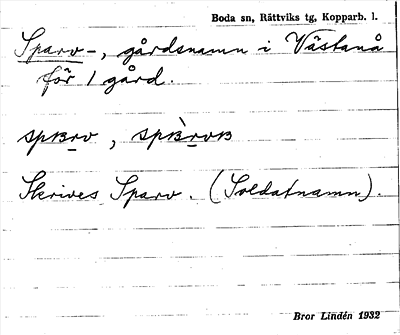 Boda sn, Rättviks tg, Kopparb. l.
Sparv-, gårdsnamn i Västanå
för 1 gård.
Skrives Sparv. (Soldatnamn).
Bror Lindén 1932